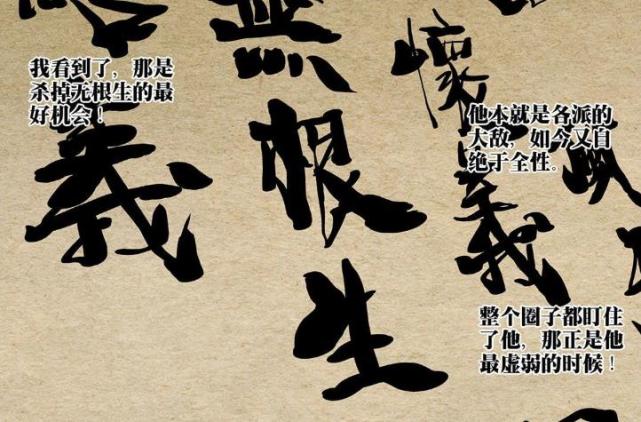 他本就是各派的
大敌，如今又自
绝于全性。
整个圈子都盯住
了他，那正是他
最虚弱的时候！
我看到了，那是
杀掉无根生的最
好机会！
懷義
無根生
義